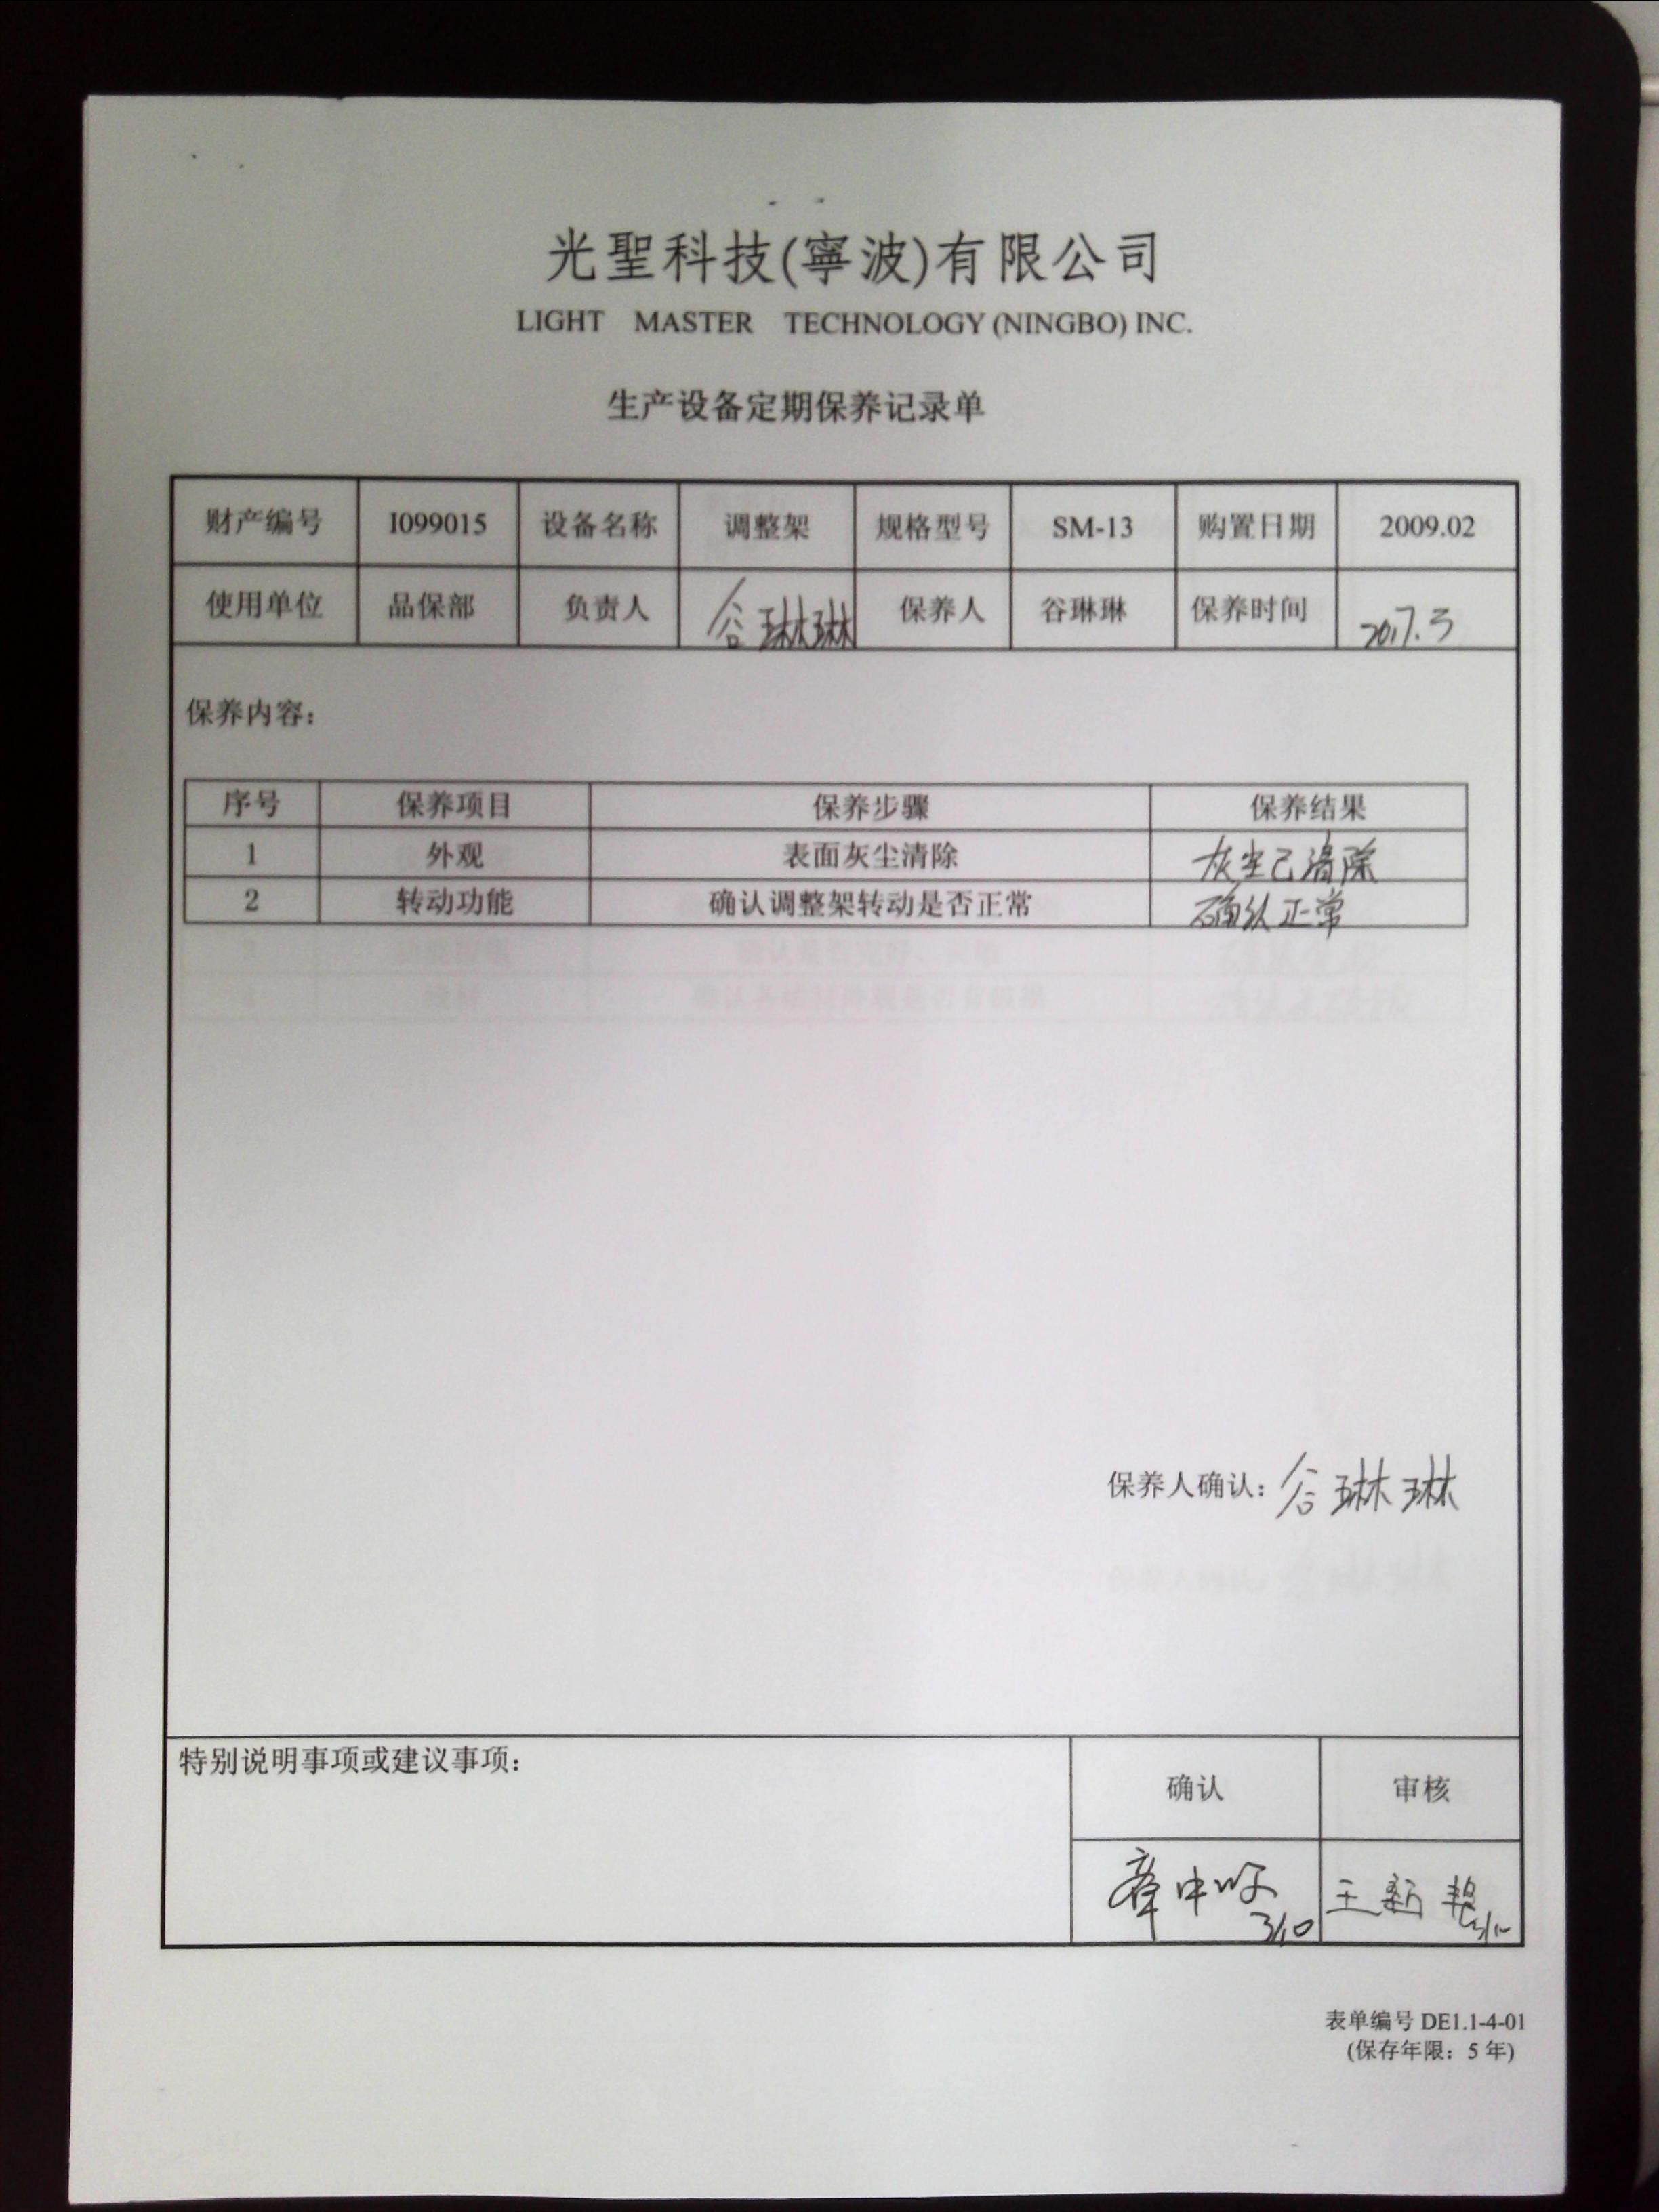 光聖科技(寧波)有限公司
LIGHT MASTER TECHNOLOGY (NINGBO) INC.
生产设备定期保养记录单
财产编号 I099015 设备名称 调整架 规格型号 SM-13 购置日期 2009.02
使用单位 品保部 负责人 谷琳琳 保养人 谷琳琳 保养时间 2017.3
保养内容：
序号 保养项目 保养步骤 保养结果
1 外观 表面灰尘清除 灰尘已清除
2 转动功能 确认调整架转动是否正常 确认正常
保养人确认：谷琳琳
特别说明事项或建议事项：
确认 审核
3/10 王新艳 3/10
表单编号 DE1.1-4-01
(保存年限：5 年)